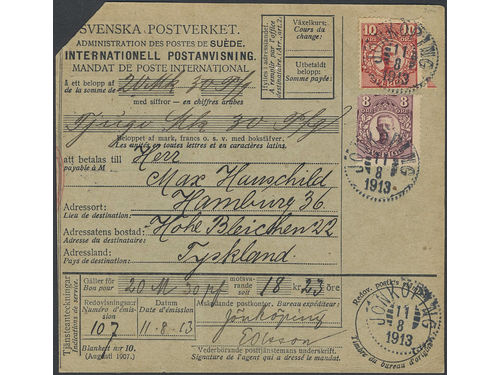 SVENSKA POSTVERKET.
ADMINISTRATION DES POSTES DE SUÈDE.
INTERNATIONELL POSTANVISNING.
MANDAT DE POSTE INTERNATIONAL
å ett belopp af
de la somme de
20 Mk 30 Pfg
med siffror — en chiffres arabes
Tjugo Mk 30 Pfg
Beloppet af mark, francs o. s. v. med bokstäfver.
Les unités en toutes lettres et en caractères latins.
att betalas till
payable à M
Herr
Max Hauschild
Adressort:
Lieu de destination:
Hamburg 36
Adressatens bostad:
Adresse du destinataire:
Hohe Bleichen 22
Adressland:
Pays de destination:
Tyskland
Växelkurs:
Cours du change:
Utbetaldt belopp:
Somme payée:
10
10
JÖNKÖPING
11
8
1913
8
8
JÖNKÖPING
11
8
1913
Tjänsteanteckningar
Indications de service.
Gäller för
Bon pour
20 M 30 pf
motsvarande
soit
18 kr 23 öre
Redovisningsnr
Numéro d'émission
107
Datum
Date d'émission
11-8-13
Utväxlande postkontor. Bureau expéditeur:
Jönköping
Blankett nr 10.
(Augusti 1907.)
Vederbörande posttjänstemans underskrift.
Signature de l'agent qui a dressé le mandat.
JÖNKÖPING
11
8
1913
Timbre du bureau d'origine